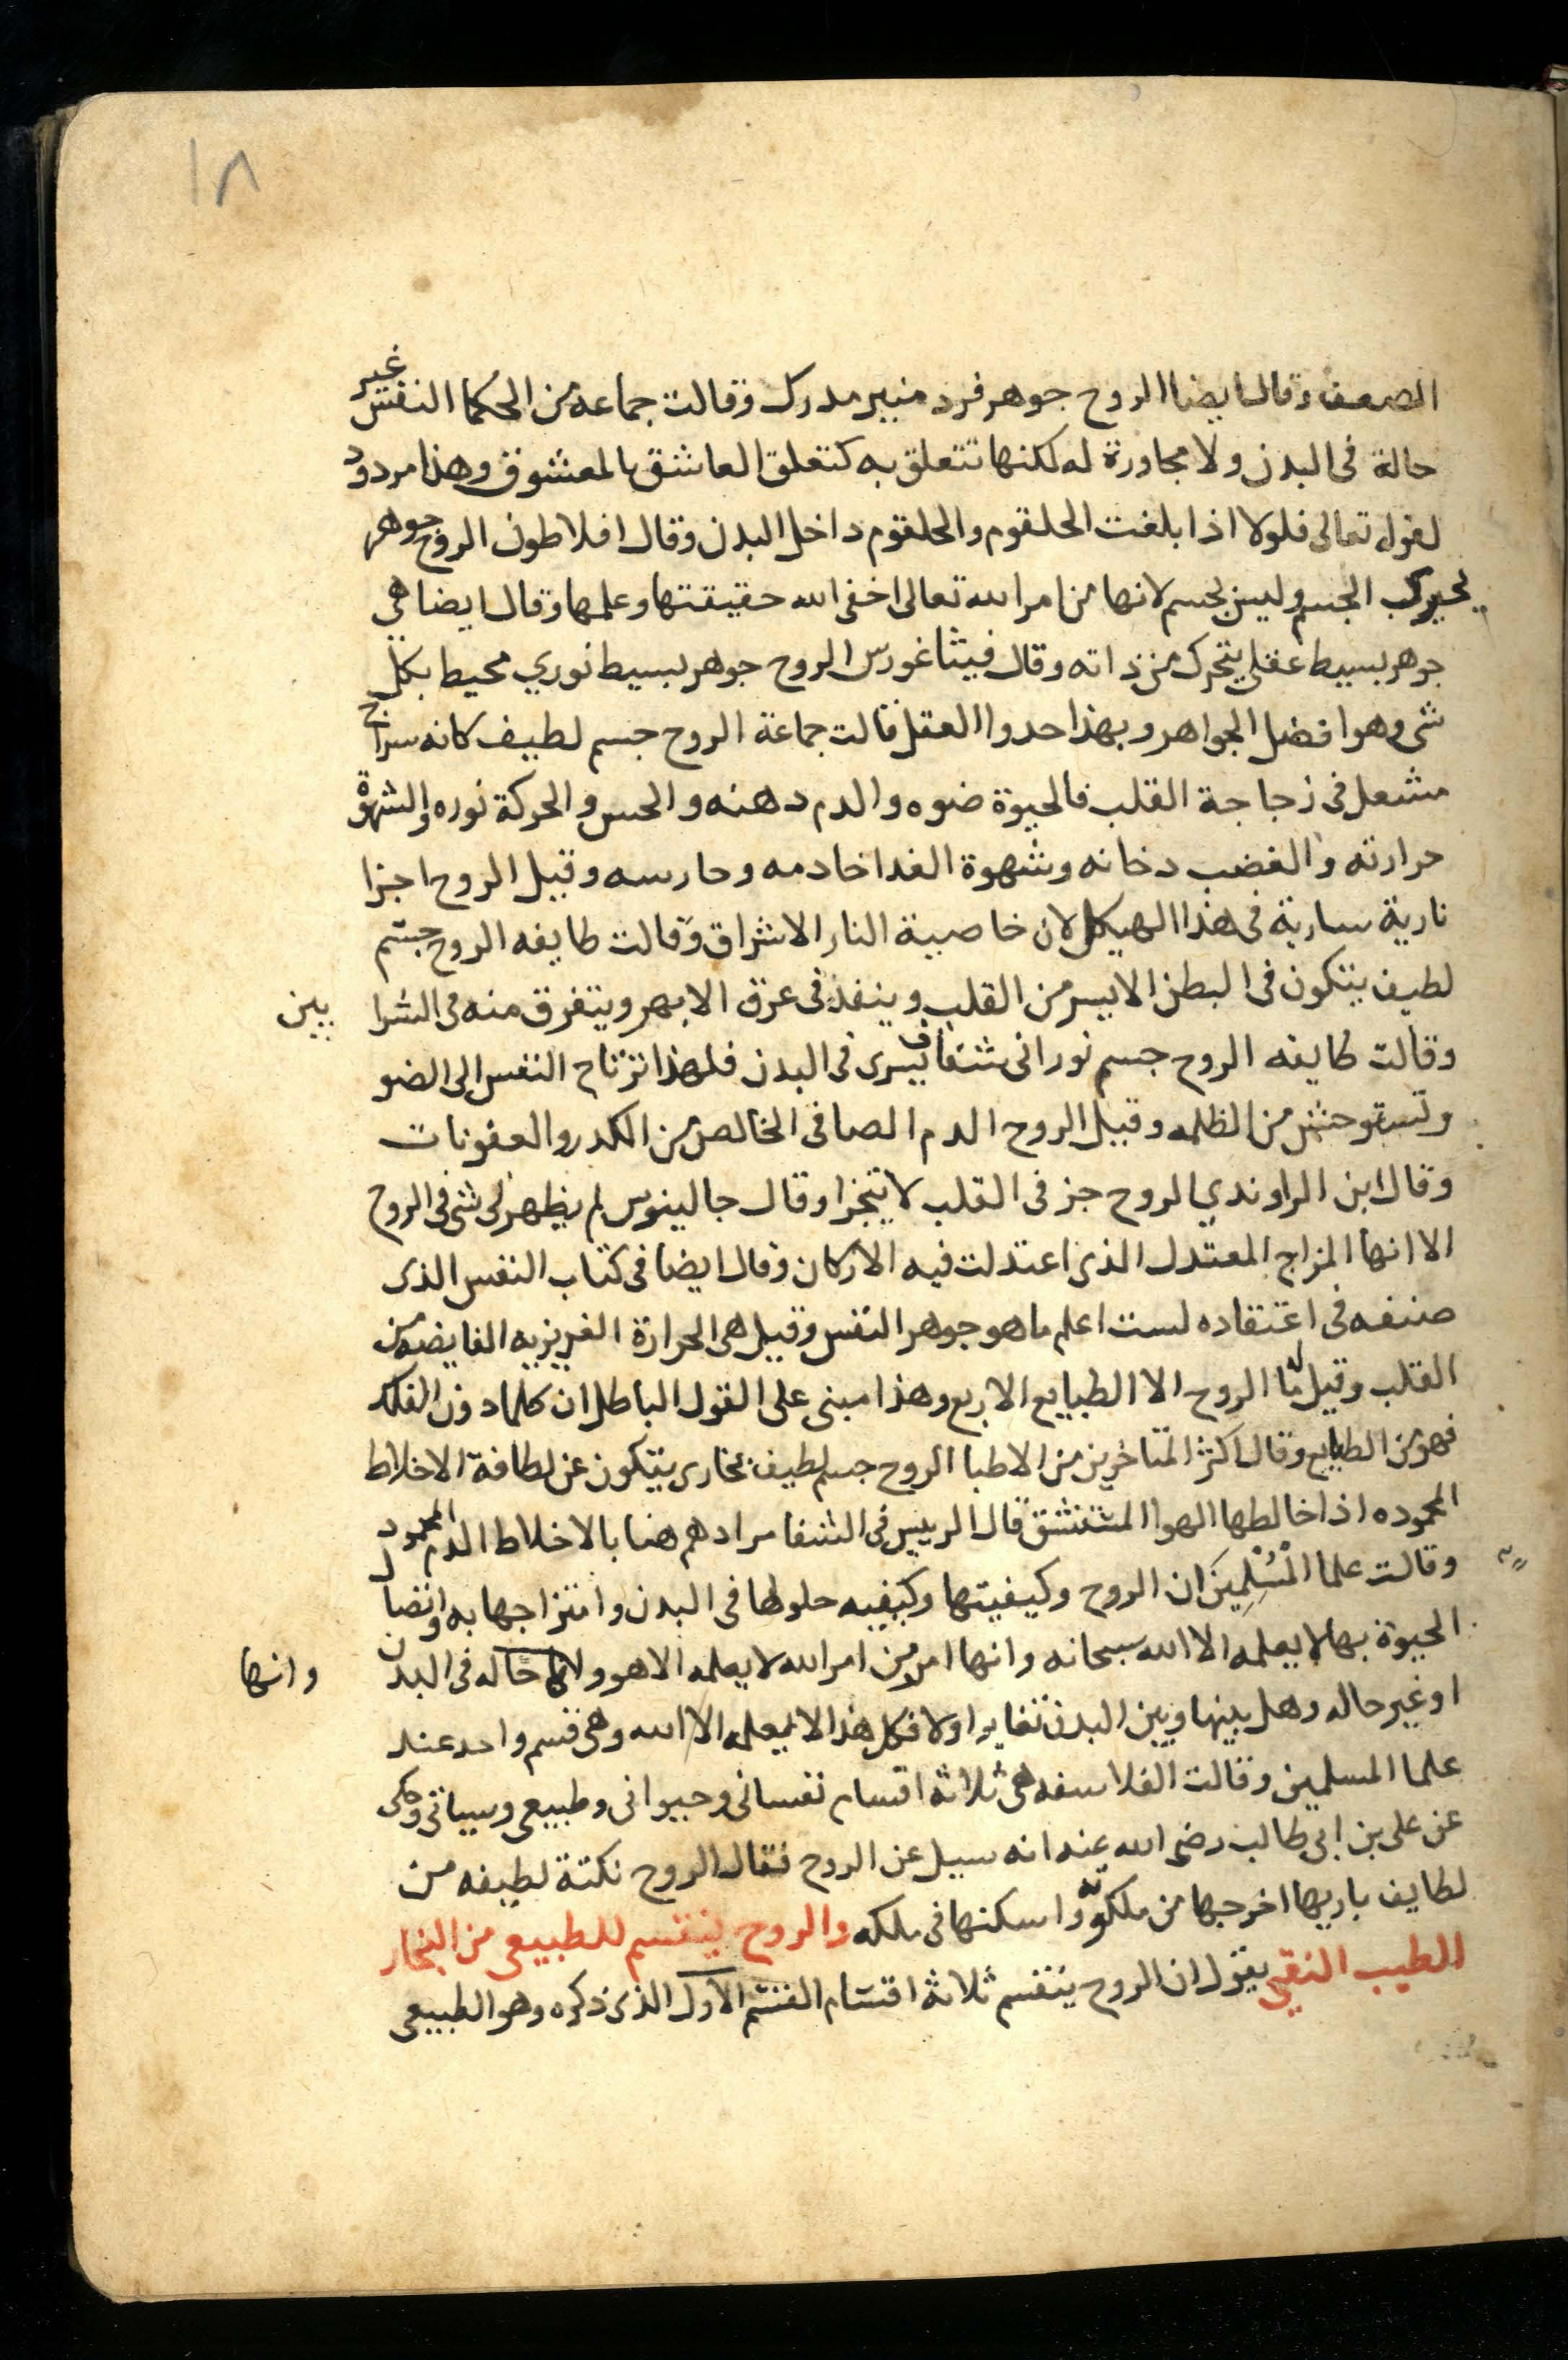 ١٨
الصعف وقال ايضا الروح جوهر فرد منير مدرك وقالت جماعه من الحكما النفس غير
حالة فى البدن ولا مجاورة له لكنها تتعلق به كتعلق العاشق بالمعشوق وهذا مردود
لقوله تعالى فلولا اذا بلغت الحلقوم والحلقوم داخل البدن وقال افلاطون الروح جوهر
يحرك الجسم وليس بجسم لانها من امر الله تعالى اخفى الله حقيقتها وعلمها وقال ايضا هي
جوهر بسيط عقلى يتحرك من ذاته وقال فيثاغورس الروح جوهر بسيط نوري محيط بكل
شى وهو افضل الجواهر وبهذا حدوا العقل قالت جماعة الروح جسم لطيف كانه سراج
مشعل فى زجاجة القلب فالحيوة ضوه والدم دهنه والحس والحركة نوره والشهوة
حرارته والغضب دخانه وشهوة الغدا خادمه وحارسه وقيل الروح اجزا
نارية سارية فى هذا الهيكل لان خاصية النار الاشراق وقالت طايفه الروح جسم
لطيف يتكون فى البطن الايسر من القلب وينفذ فى عرق الابهر ويتفرق منه فى الشرا يين
وقالت طايفه الروح جسم نورانى شفاف يسرى فى البدن فلهذا ترتاح النفس الى الضو
وتستوحش من الظلمه وقيل الروح الدم الصافى الخالص من الكدر والعفونات
وقال ابن الراوندي الروح جز فى القلب لا يتجزا وقال جالينوس لم يظهر لى شى فى الروح
الا انها المزاج المعتدل الذى اعتدلت فيه الاركان وقال ايضا فى كتاب النفس الذى
صنفه فى اعتقاده لست اعلم ما هو جوهر النفس وقيل هى الحرارة الغريزيه الفايضه من
القلب وقيل ما الروح الا الطبايع الاربع وهذا مبنى على القول الباطل ان كلما دون الفلك
فهو من الطبايع وقال اكثر المتاخرين من الاطبا الروح جسم لطيف بخارى يتكون عن لطافة الاخلاط
المحموده اذا خالطها الهوا المستنشق قال الرييس فى الشفا مرادهم هنا بالاخلاط الدم المحمود
وقالت علما الْمُسْلِمِينَ ان الروح وكيفيتها وكيفيه حلولها فى البدن وامتزاجها به واتصال
الحيوة بها لا يعلمه الا الله سبحانه وانها امر من امر الله لا يعلمه الا هو وانها حاله فى البدن
وانها
او غير حاله وهل بينها وبين البدن تغاير اولا فكل هذا لا يعلمه الا الله وهى قسم واحد عند
علما المسلمين وقالت الفلاسفه هى ثلاثة اقسام نفسانى وحيوانى وطبيعى وسياتى وحكى
عن على بن ابى طالب رضى الله عنه انه سيل عن الروح فقال الروح نكتة لطيفه من
لطايف باريها اخرجها من ملكوته واسكنها فى ملكه والروح ينقسم للطبيعى من البخار
الطيب النقي يقول ان الروح ينقسم ثلاثة اقسام القسم الاول الذى ذكره وهو الطبيعى